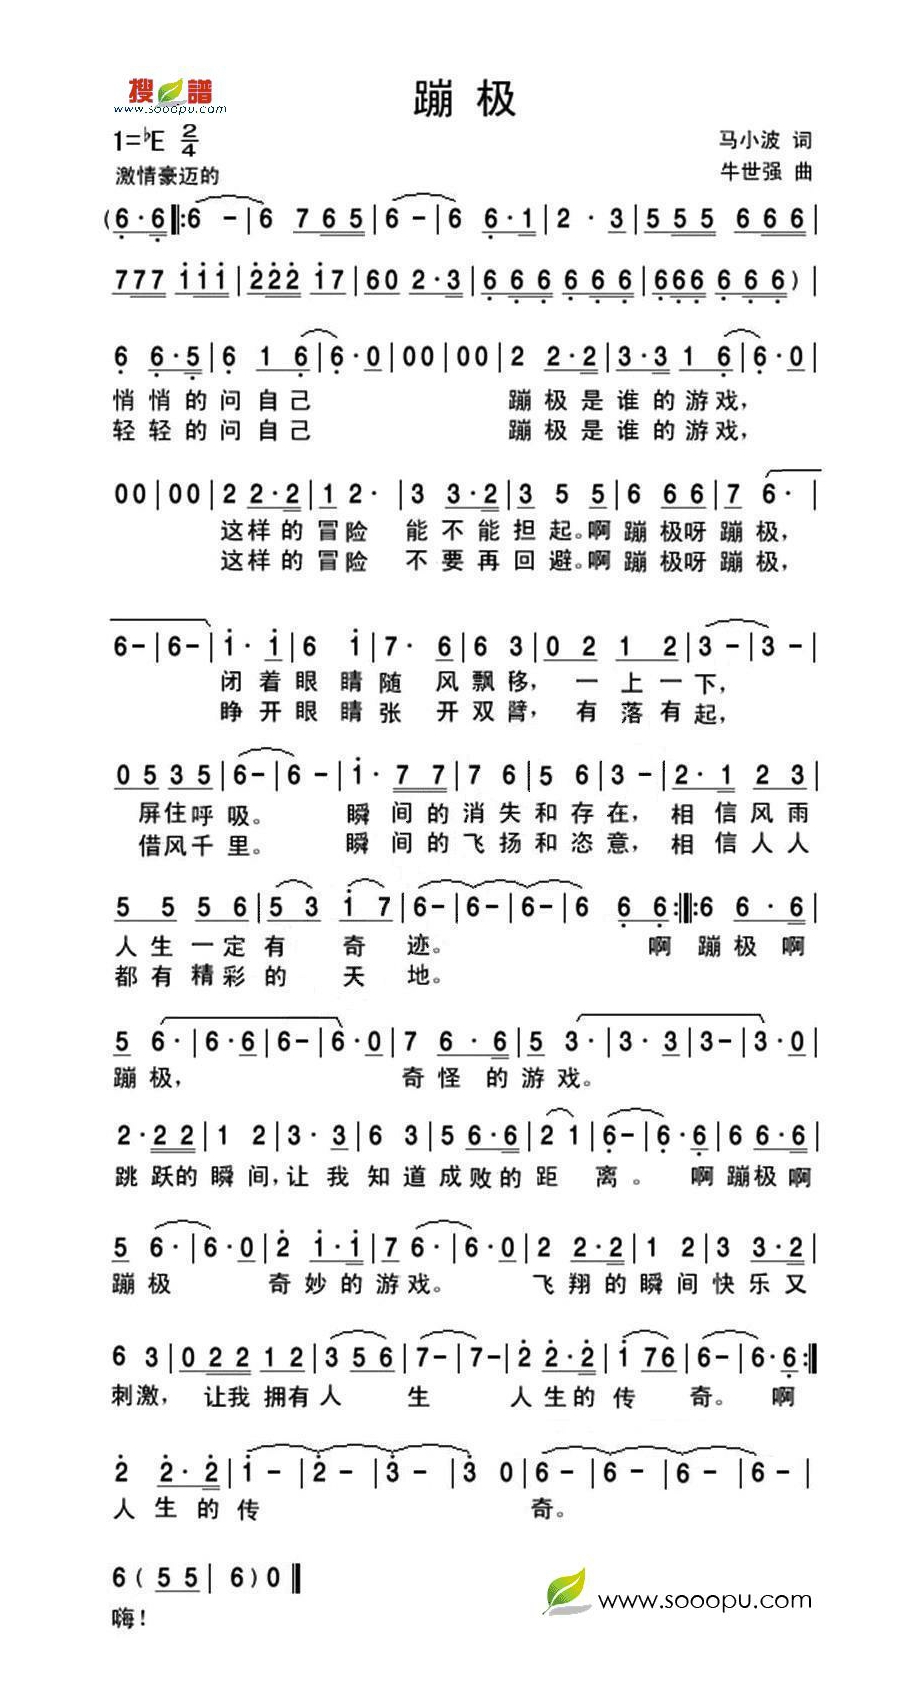 搜谱
www.sooopu.com
蹦极
1=♭E 2/4
马小波 词
激情豪迈的
牛世强 曲
(6·6‖:6 -|6 765|6 -|6 6·1|2 · 3|555 666|
777 iii|222 i7|60 2·3|666 666|666 666)|
6 6·5|6 1 6|6·0|00|00|2 2·2|3·3 1 6|6·0|
悄悄的问自己 蹦极是谁的游戏，
轻轻的问自己 蹦极是谁的游戏，
00|00|2 2·2|1 2·|3 3·2|3 5 5|6 66|7 6·|
这样的冒险 能不能担起。啊蹦极呀蹦极，
这样的冒险 不要再回避。啊蹦极呀蹦极，
6-|6-|i·i|6 i|7· 6|6 3|0 2 1 2|3-|3-|
闭着眼睛随风飘移，一上一下，
睁开眼睛张开双臂，有落有起，
0 5 3 5|6-|6-|i· 7 7|7 6|5 6|3-|2·1 2 3|
屏住呼吸。 瞬间的消失和存在，相信风雨
借风千里。 瞬间的飞扬和恣意，相信人人
5 5 5 6|5 3 i 7|6-|6-|6-|6 6 6:‖:6 6 · 6|
人生一定有奇迹。 啊蹦极啊
都有精彩的天地。
5 6·|6·6|6-|6·0|7 6·6|5 3·|3·3|3-|3·0|
蹦极， 奇怪的游戏。
2·22|1 2|3·3|6 3|5 6·6|2 1|6-|6·6|6 6·6|
跳跃的瞬间，让我知道成败的距离。 啊蹦极啊
5 6·|6·0|2 i·i|7 6·|6·0|2 2·2|1 2|3 3·2|
蹦极 奇妙的游戏。 飞翔的瞬间快乐又
6 3|0 22 1 2|3 56|7-|7-|2 2·2|i 76|6-|6·6:‖
刺激，让我拥有人生 人生的传奇。 啊
2 2·2|i-|2-|3-|3 0|6-|6-|6-|6-|
人生的传 奇。
6(55| 6)0‖
www.sooopu.com
嗨！